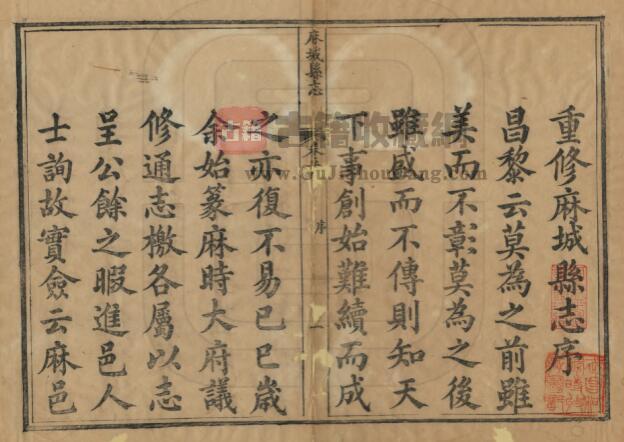 重修麻城縣志序
昌黎云莫為之前雖
美而不彰莫為之後
雖盛而不傳則知天
下事創始難續而成
麻城縣志
序
一
之亦復不易己巳歲
余始篆麻時大府議
修通志檄各屬以志
呈公餘之暇進邑人
士詢故實僉云麻邑
古籍
古籍收藏網
www.GuJiShouCang.com